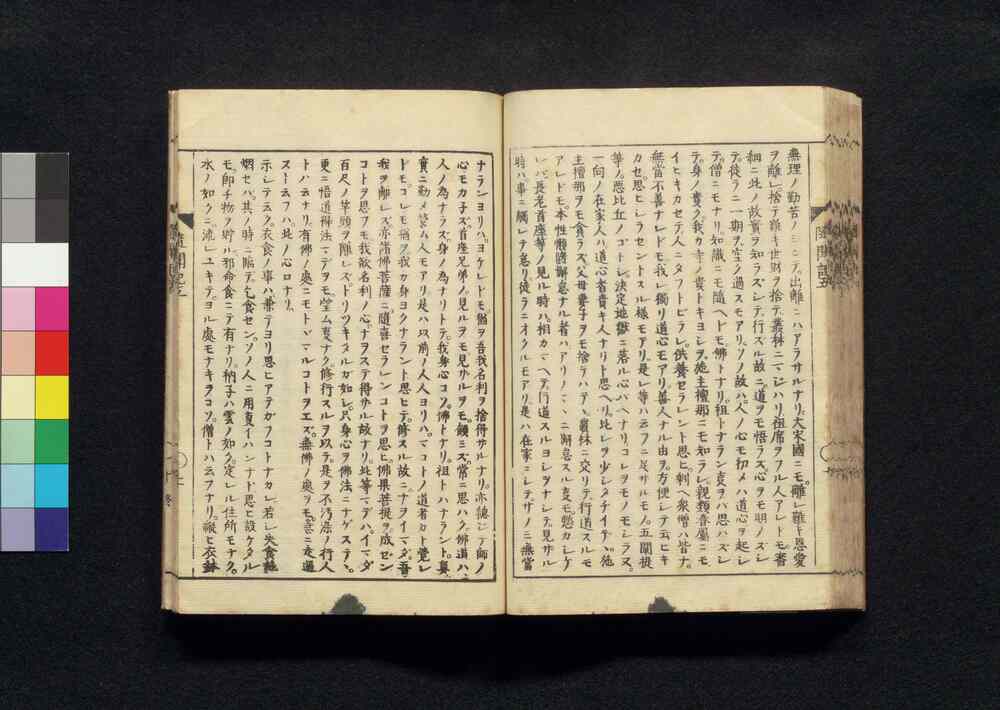 無理ノ勤苦ノミニテ出離ニハアラサルナリ大宋國ニモ離レ難キ恩愛
ヲ離レ捨テ難キ世財ヲ捨テ叢林ニマシハリ祖席ヲフル人アレトモ審
細ニ此ノ故實ヲ知ラズシテ行スル故ニ道ヲモ悟ラズ心ヲモ明ノズシ
テ徒ラニ一期ヲ空ク過スモアリソノ故ハ人ノ心モ初メハ道心ヲ起シ
テ僧ニモナリ知識ニモ隨ヘドモ佛トナリ祖トナラン事ヲハ思ハズシ
テ身ノ貴ク我カ寺ノ貴トキヨシヲ施主檀那ニモ知ラレ親類眷屬ニモ
イヒキカセテ人ニタフトビラレ供養セラレント思ヒ剩ヘ衆僧ハ皆ナ
無當不善ナレドモ我レ獨リ道心モアリ善人ナル由ヲ方便シテ云ヒキ
カセ思ヒシラセントスル樣モアリ是レ等ハ云フニ足サルモノ五闡提
等ノ惡比丘ノゴトシ決定地獄ニ落ル心バヘナリコレヲモノモシラヌ
一向ノ在家人ハ道心者貴キ人ナリト思ヘリ此レヲ少シタチイデヽ施
主檀那ヲモ貪ラズ父母妻子ヲモ捨テハテヽ叢林ニ交リテ行道スルモ
アレドモ本性懶惰懈怠ナル者ハアリノマヽニ懈怠スル事モ慙カレケ
レバ長老首座等ノ見ル時ハ相カマヘテ行道スルヨシヲナシテ見サル
時ハ事ニ觸レテ怠リ徒ラニオクルモアリ是ハ在家ニシテサノミ無當
ナランヨリハヨケレドモ猶ヲ吾我名利ヲ捨得サルナリ亦
師ノ
心モカ子ズ首座兄弟ノ見ルヲモ見サルヲモ顧ミズ常ニ思ハク佛道ハ
人ノ為ナラズ身ノ為ナリトテ我身心コソ佛トナリ祖トハナラント真
實ニ勤メ營ム人モアリ是ハ以前ノ人人ヨリハマコトノ道者カト覺レ
ドモコレモ猶ヲ我カ身ヨクナラント思ヒテ修スル故ニナヲイマダ吾
我ヲ離レズ亦諸佛菩薩ニ隨喜セラレンコトヲ思ヒ佛果菩提ヲ成セン
コトヲ思フモ我欲名利ノ心ナヲステ得サル故ナリ此等マデハイマダ
百尺ノ竿頭ヲ離レズトリツキタルガ如シ尺身心ヲ佛法ニナゲステヽ
更ニ悟道得法マデヲモ望ム事ナク修行スルヲ以テ是ヲ不汚染ノ行人
トハ云ナリ有佛ノ處ニモトヾマルコトヲエズ無佛ノ處ヲモ急ニ走過
ストニ云フハ此ノ心ロナリ
示シテ云ク衣食ノ事ハ兼テヨリ思ヒアテガフコトナカレ若シ失食絶
烟セバ其ノ時ニ臨テ乞食センソノ人ニ用事イハンナト思ヒ設ケタル
モ即チ物ヲ貯ル邪命食ニテ有ナリ衲子ハ雲ノ如ク定レル住所モナク
水ノ如クニ流レユキテヨル處モナキヲコソ僧トハ云フナリ縱ヒ衣鉢